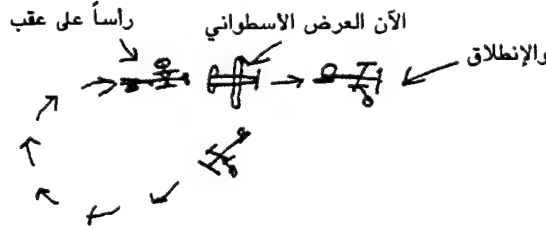 رأساً على عقب
الآن العرض الاسطواني
والإنطلاق